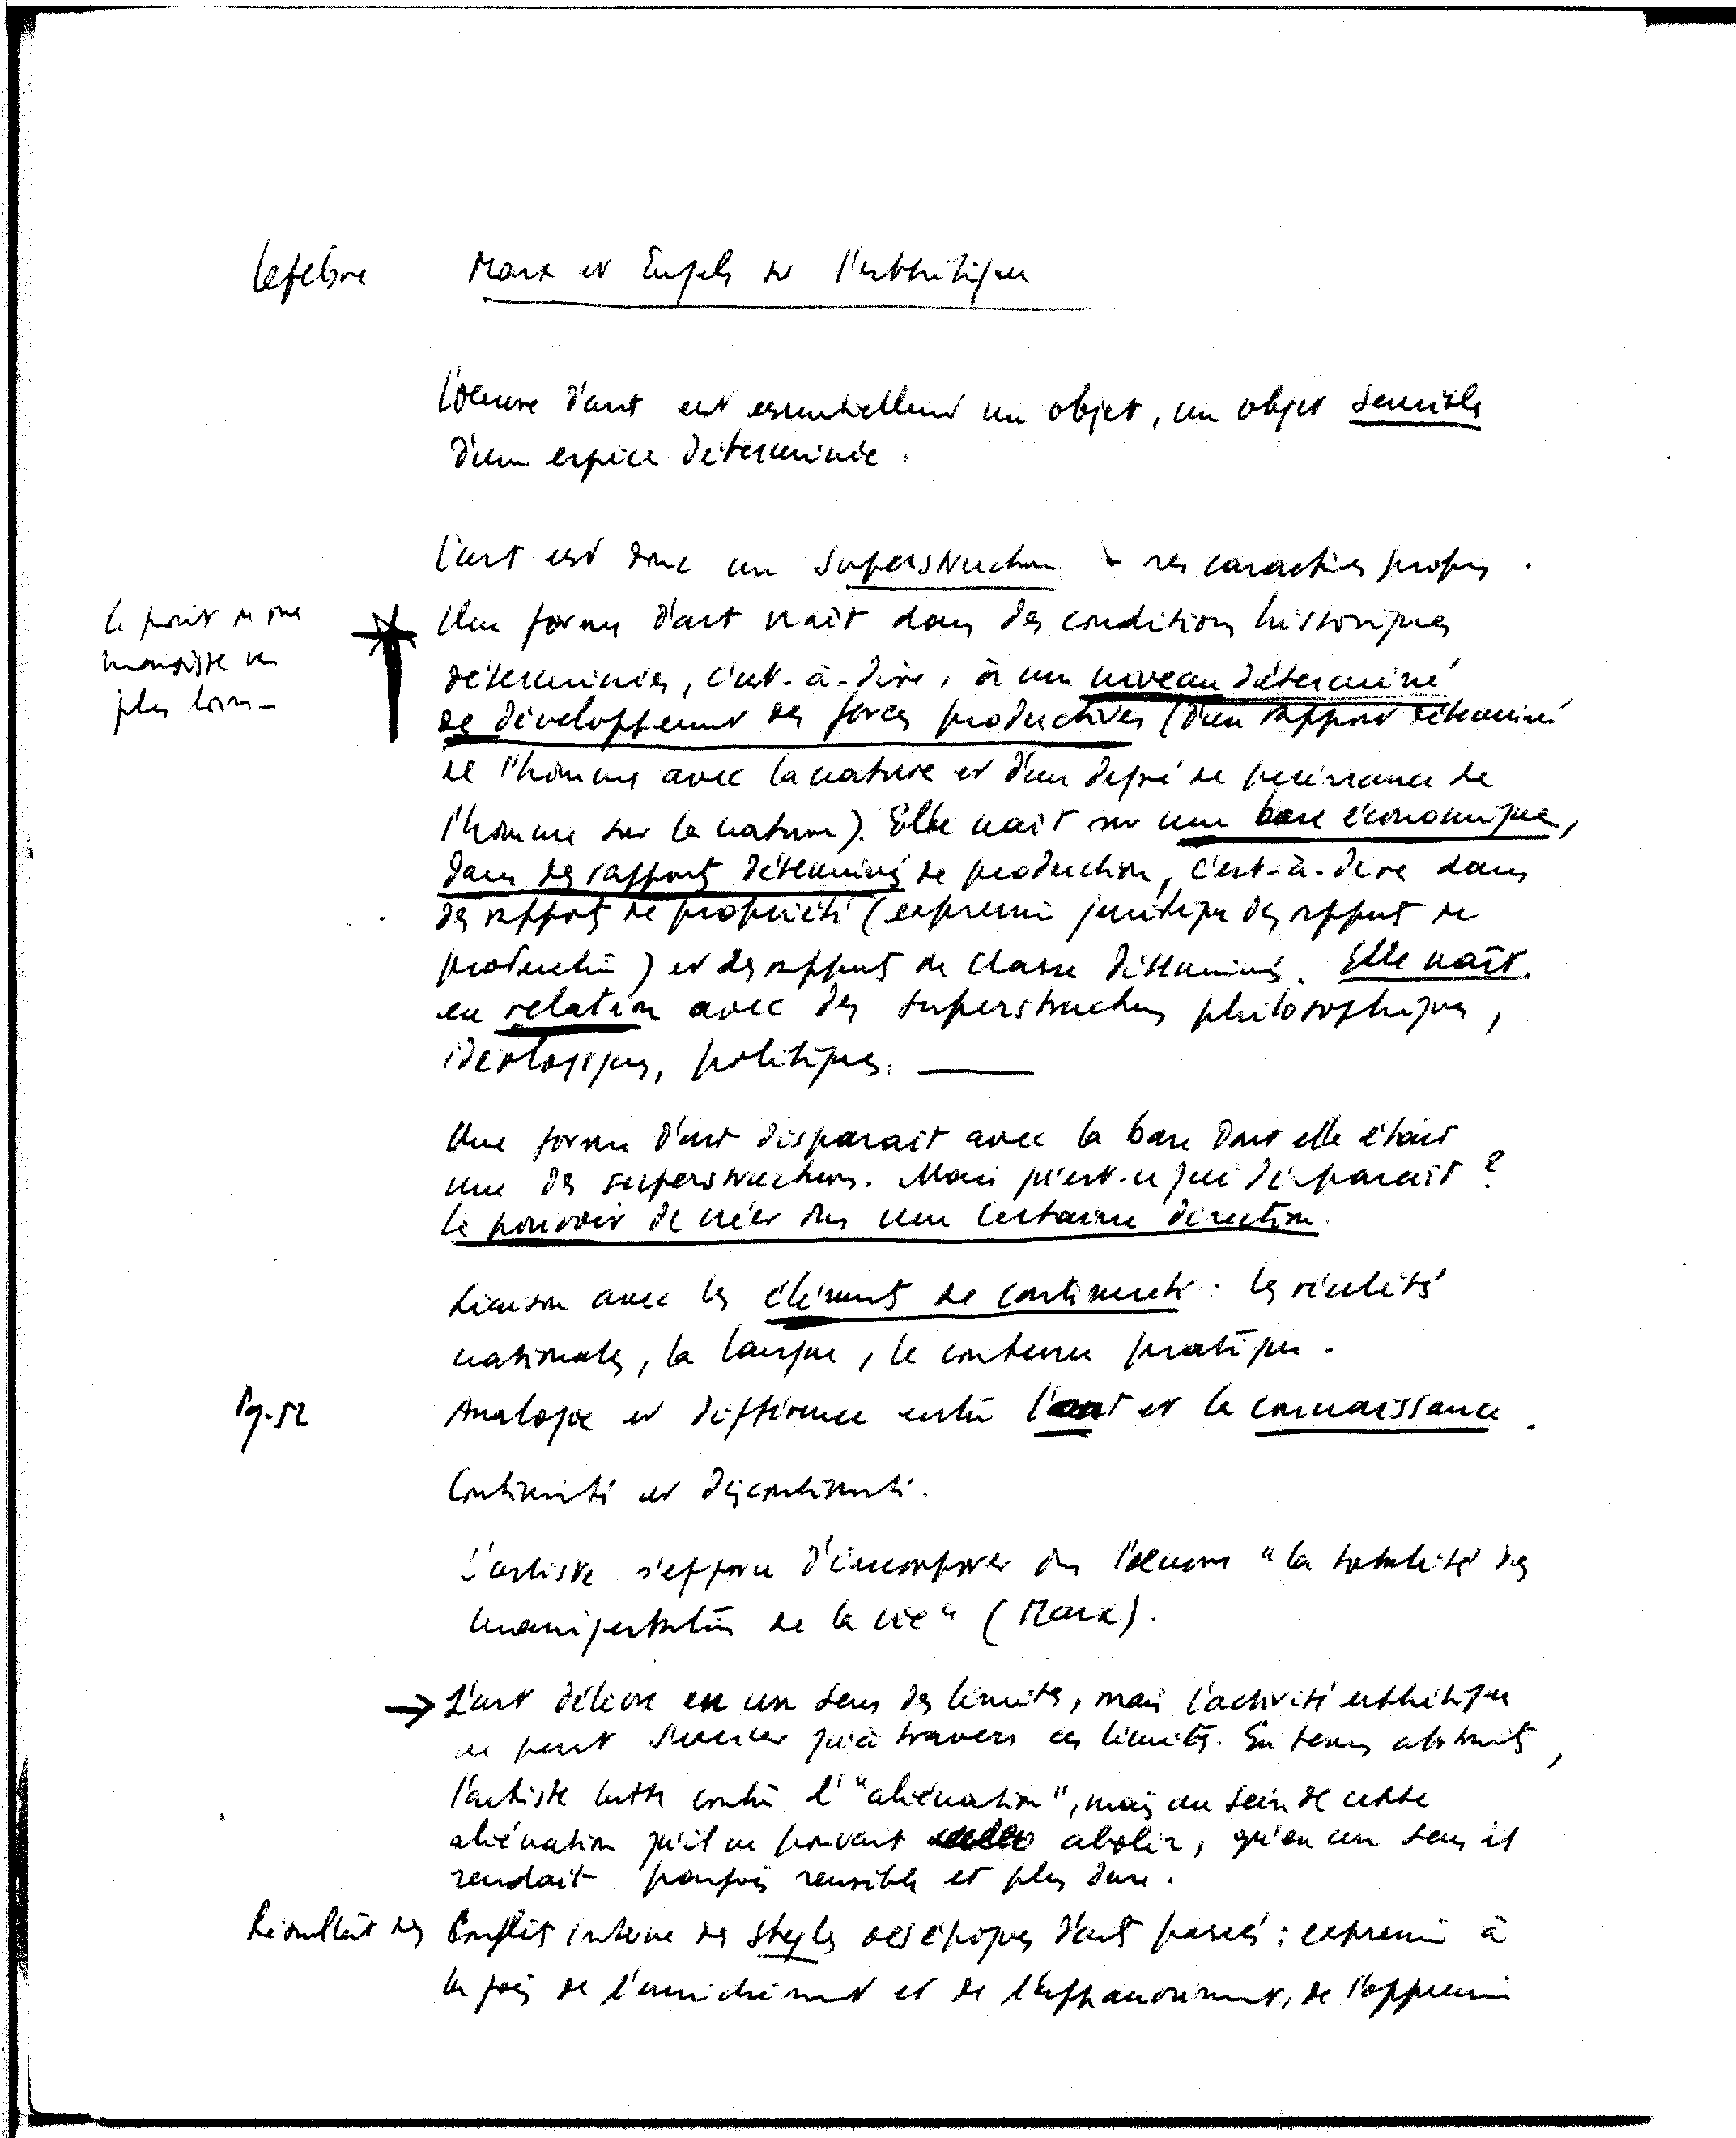 Lefebvre Marx et Engels sur l'esthétique
L'oeuvre d'art est essentiellement un objet, un objet sensible
d'une espèce déterminée.
L'art est donc une superstructure à ses caractères propres.
Une forme d'art naît dans des conditions historiques
le point de vue
marxiste va
plus loin
déterminées, c'est-à-dire, à un niveau déterminé
de développement des forces productives (d'un rapport déterminé
de l'homme avec la nature et d'un degré de puissance de
l'homme sur la nature). Elle naît sur une base économique,
dans des rapports déterminés de production, c'est-à-dire dans
des rapports de propriété (expression juridique des rapports de
production) et des rapports de classe déterminés. Elle naît
en relation avec des superstructures philosophiques,
idéologiques, politiques.
Une forme d'art disparaît avec la base dont elle était
une des superstructures. Mais qu'est-ce qui disparaît?
Le pouvoir de créer dans une certaine direction.
Liaison avec les éléments de continuité: les réalités
nationales, la langue, le contenu pratique.
Pg. 52 Analogie et différence entre l'art et la connaissance.
Continuité et discontinuité.
L'artiste s'efforce d'incorporer dans l'oeuvre "la totalité des
manifestations de la vie" (Marx).
→ L'art délivre en un sens des limites, mais l'activité esthétique
ne peut s'exercer qu'à travers ces limites. En termes abstraits,
l'artiste lutte contre l'"aliénation", mais au sein de cette
aliénation qu'il ne pouvait abolir, qu'en un sens il
rendait parfois sensible et plus dure.
Résultat des Conflits interne des styles des époques d'art passés: expression à
la fois de l'enrichissement et de l'appauvrissement, de l'oppression